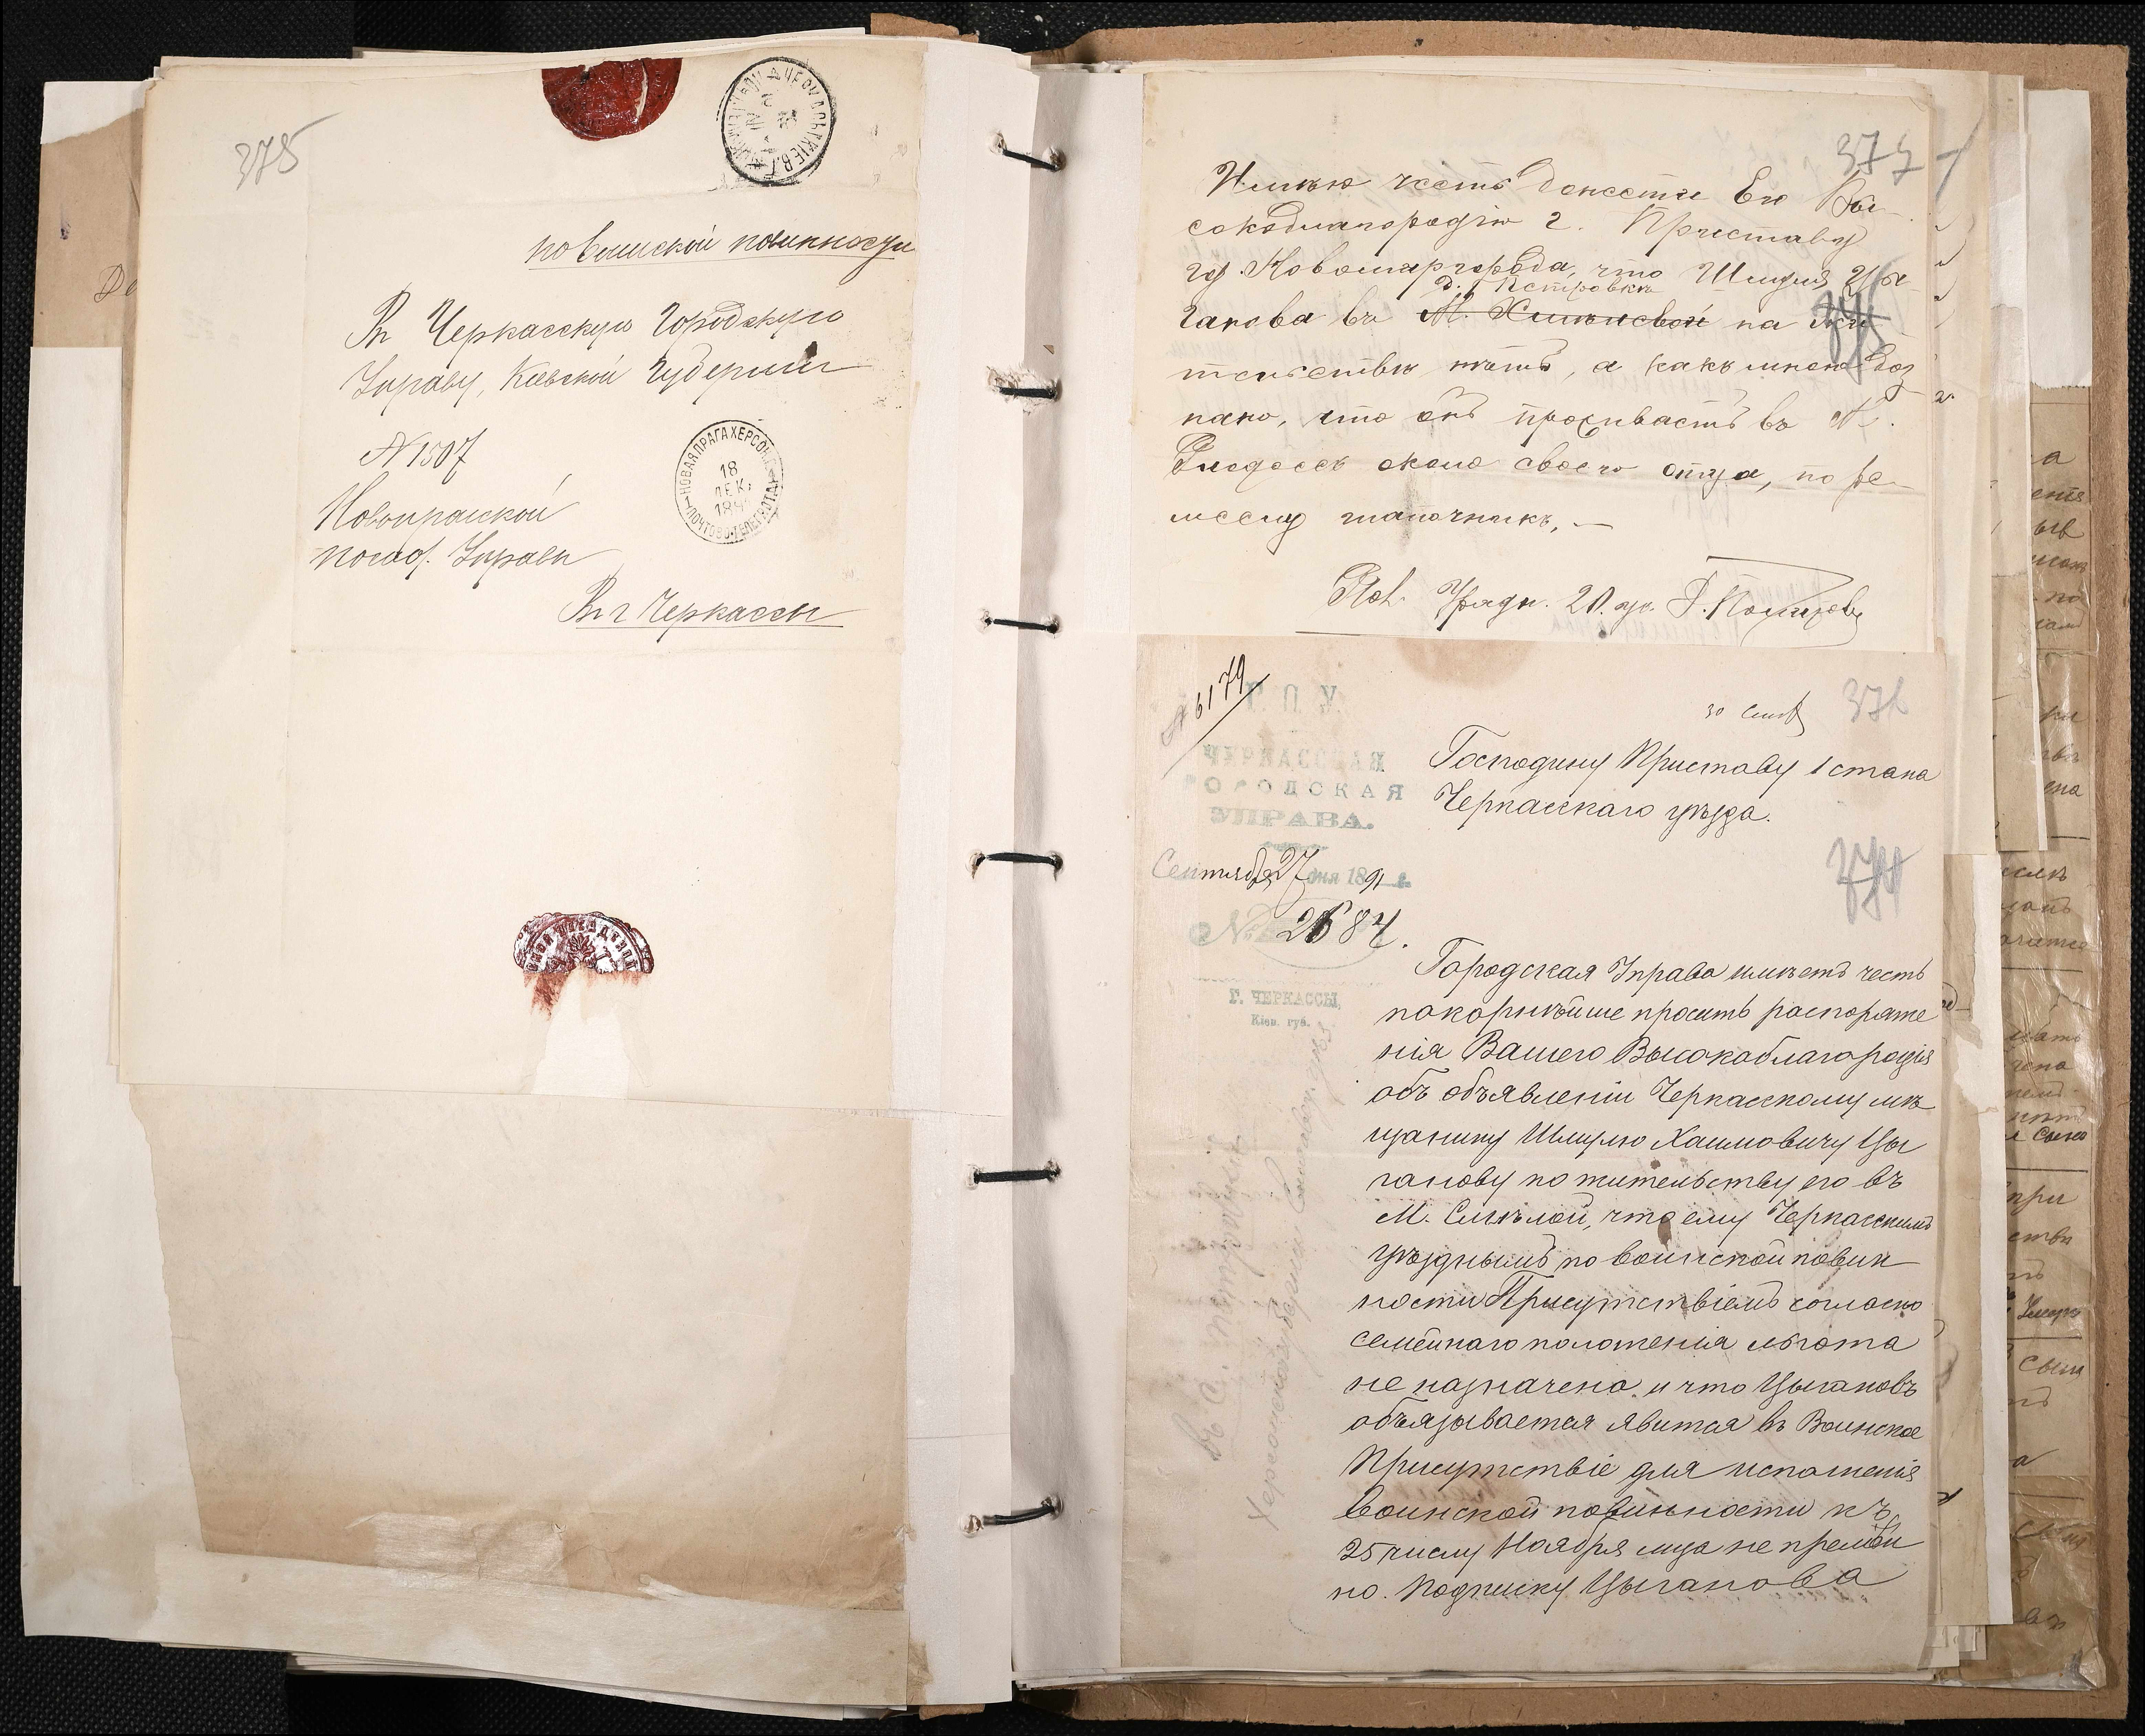 375
по воинской повинности
Въ Черкасскую Городскую
Управу, Кіевской Губерніи
№ 1507
НОВАЯ ПРАГА ХЕРСОН.
18
ДЕК.
ПОЧТОВО-ТЕЛЕГР.
Новопражской
посад. Управы
Въ г Черкассы
377
Имѣю честь донести Его Вы-
сокоблагородію г. Приставу
гор. Новомиргорода, что Шмуля Цы-
д. Петровкѣ
ганова въ М. на жи
тельствѣ нѣтъ, а какъ мною доз
нано, что онъ проживаетъ въ М.
около своего отца, по ре-
меслу шапочникъ, —
Пол. Урядн. 20. уч.
№ 6179
Г П У
ЧЕРКАССКАЯ
ГОРОДСКАЯ
УПРАВА.
Сентября 27 дня 1891 г.
№ 2684.
Г. ЧЕРКАССЫ,
Кіев. губ.
30 Сент
376
Господину Приставу 1 стана
Черкасскаго уѣзда.
Городская Управа имѣетъ честь
покорнѣйше просить распоряже
нія Вашего Высокоблагородія
объ объявленіи Черкасскому мѣ
щанину Шмулю Хаимовичу Цы
ганову по жительству его въ
М. Смѣлой, что ему Черкасскимъ
уѣзднымъ по воинской повин
ности Присутствіемъ согласно
семейнаго положенія льгота
не назначена и что Цыгановъ
обязывается явится въ Воинское
Присутствіе для исполненія
воинской повинности къ
25 числу Ноября м-ца не премѣн
но. Подписку Цыганова